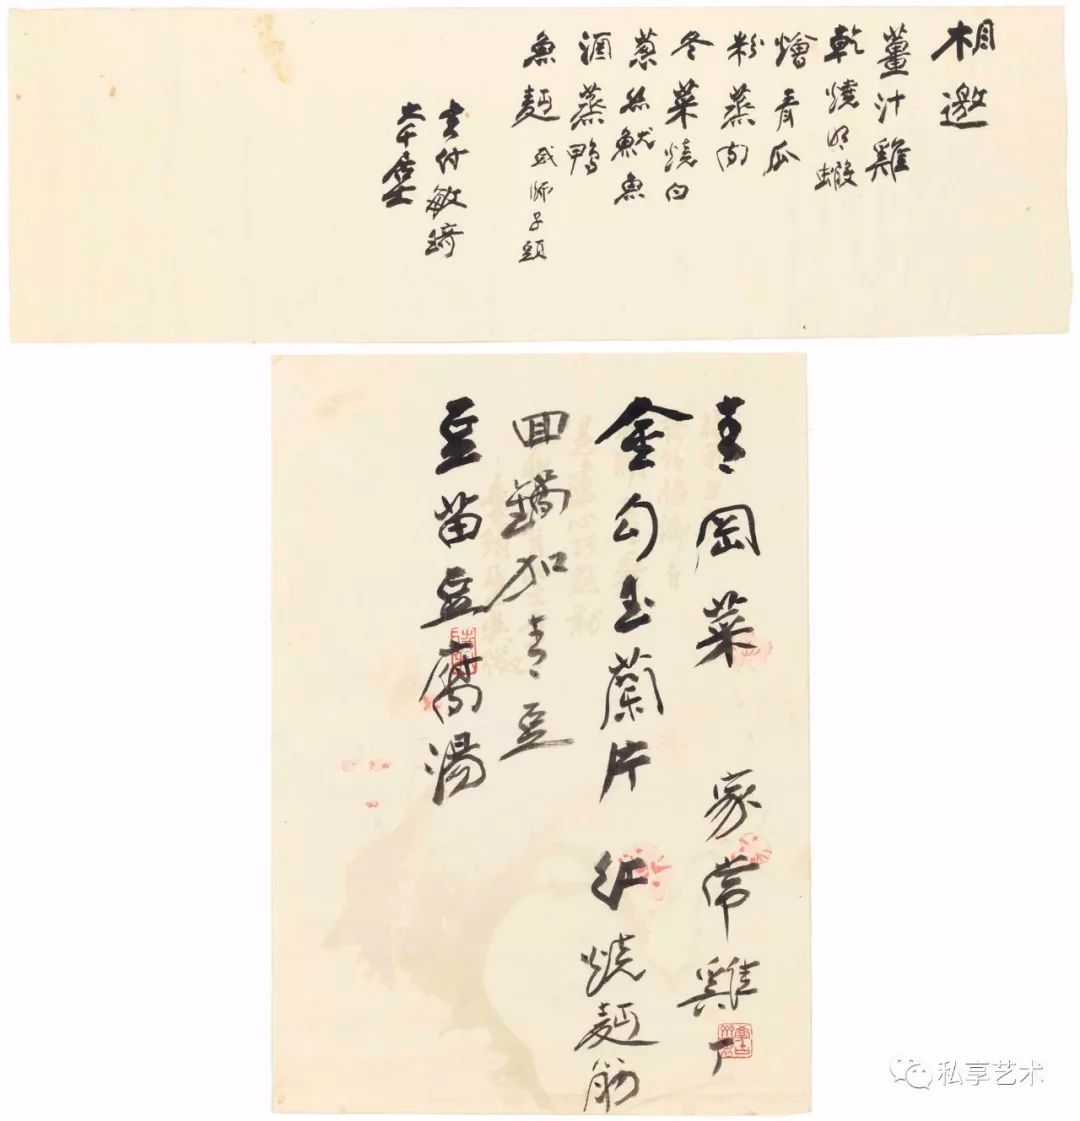 相邀
薑汁雞
乾燒明蝦
燴青瓜
粉蒸肉
冬菜燒白
葱絲魷魚
酒蒸鴨
魚麵 或獅子頭
書付敏琦
大千居士
青岡菜 家常雞丁
金勾玉蘭片 红燒麵筋
回鍋加青豆
豆苗豆腐湯
私享艺术